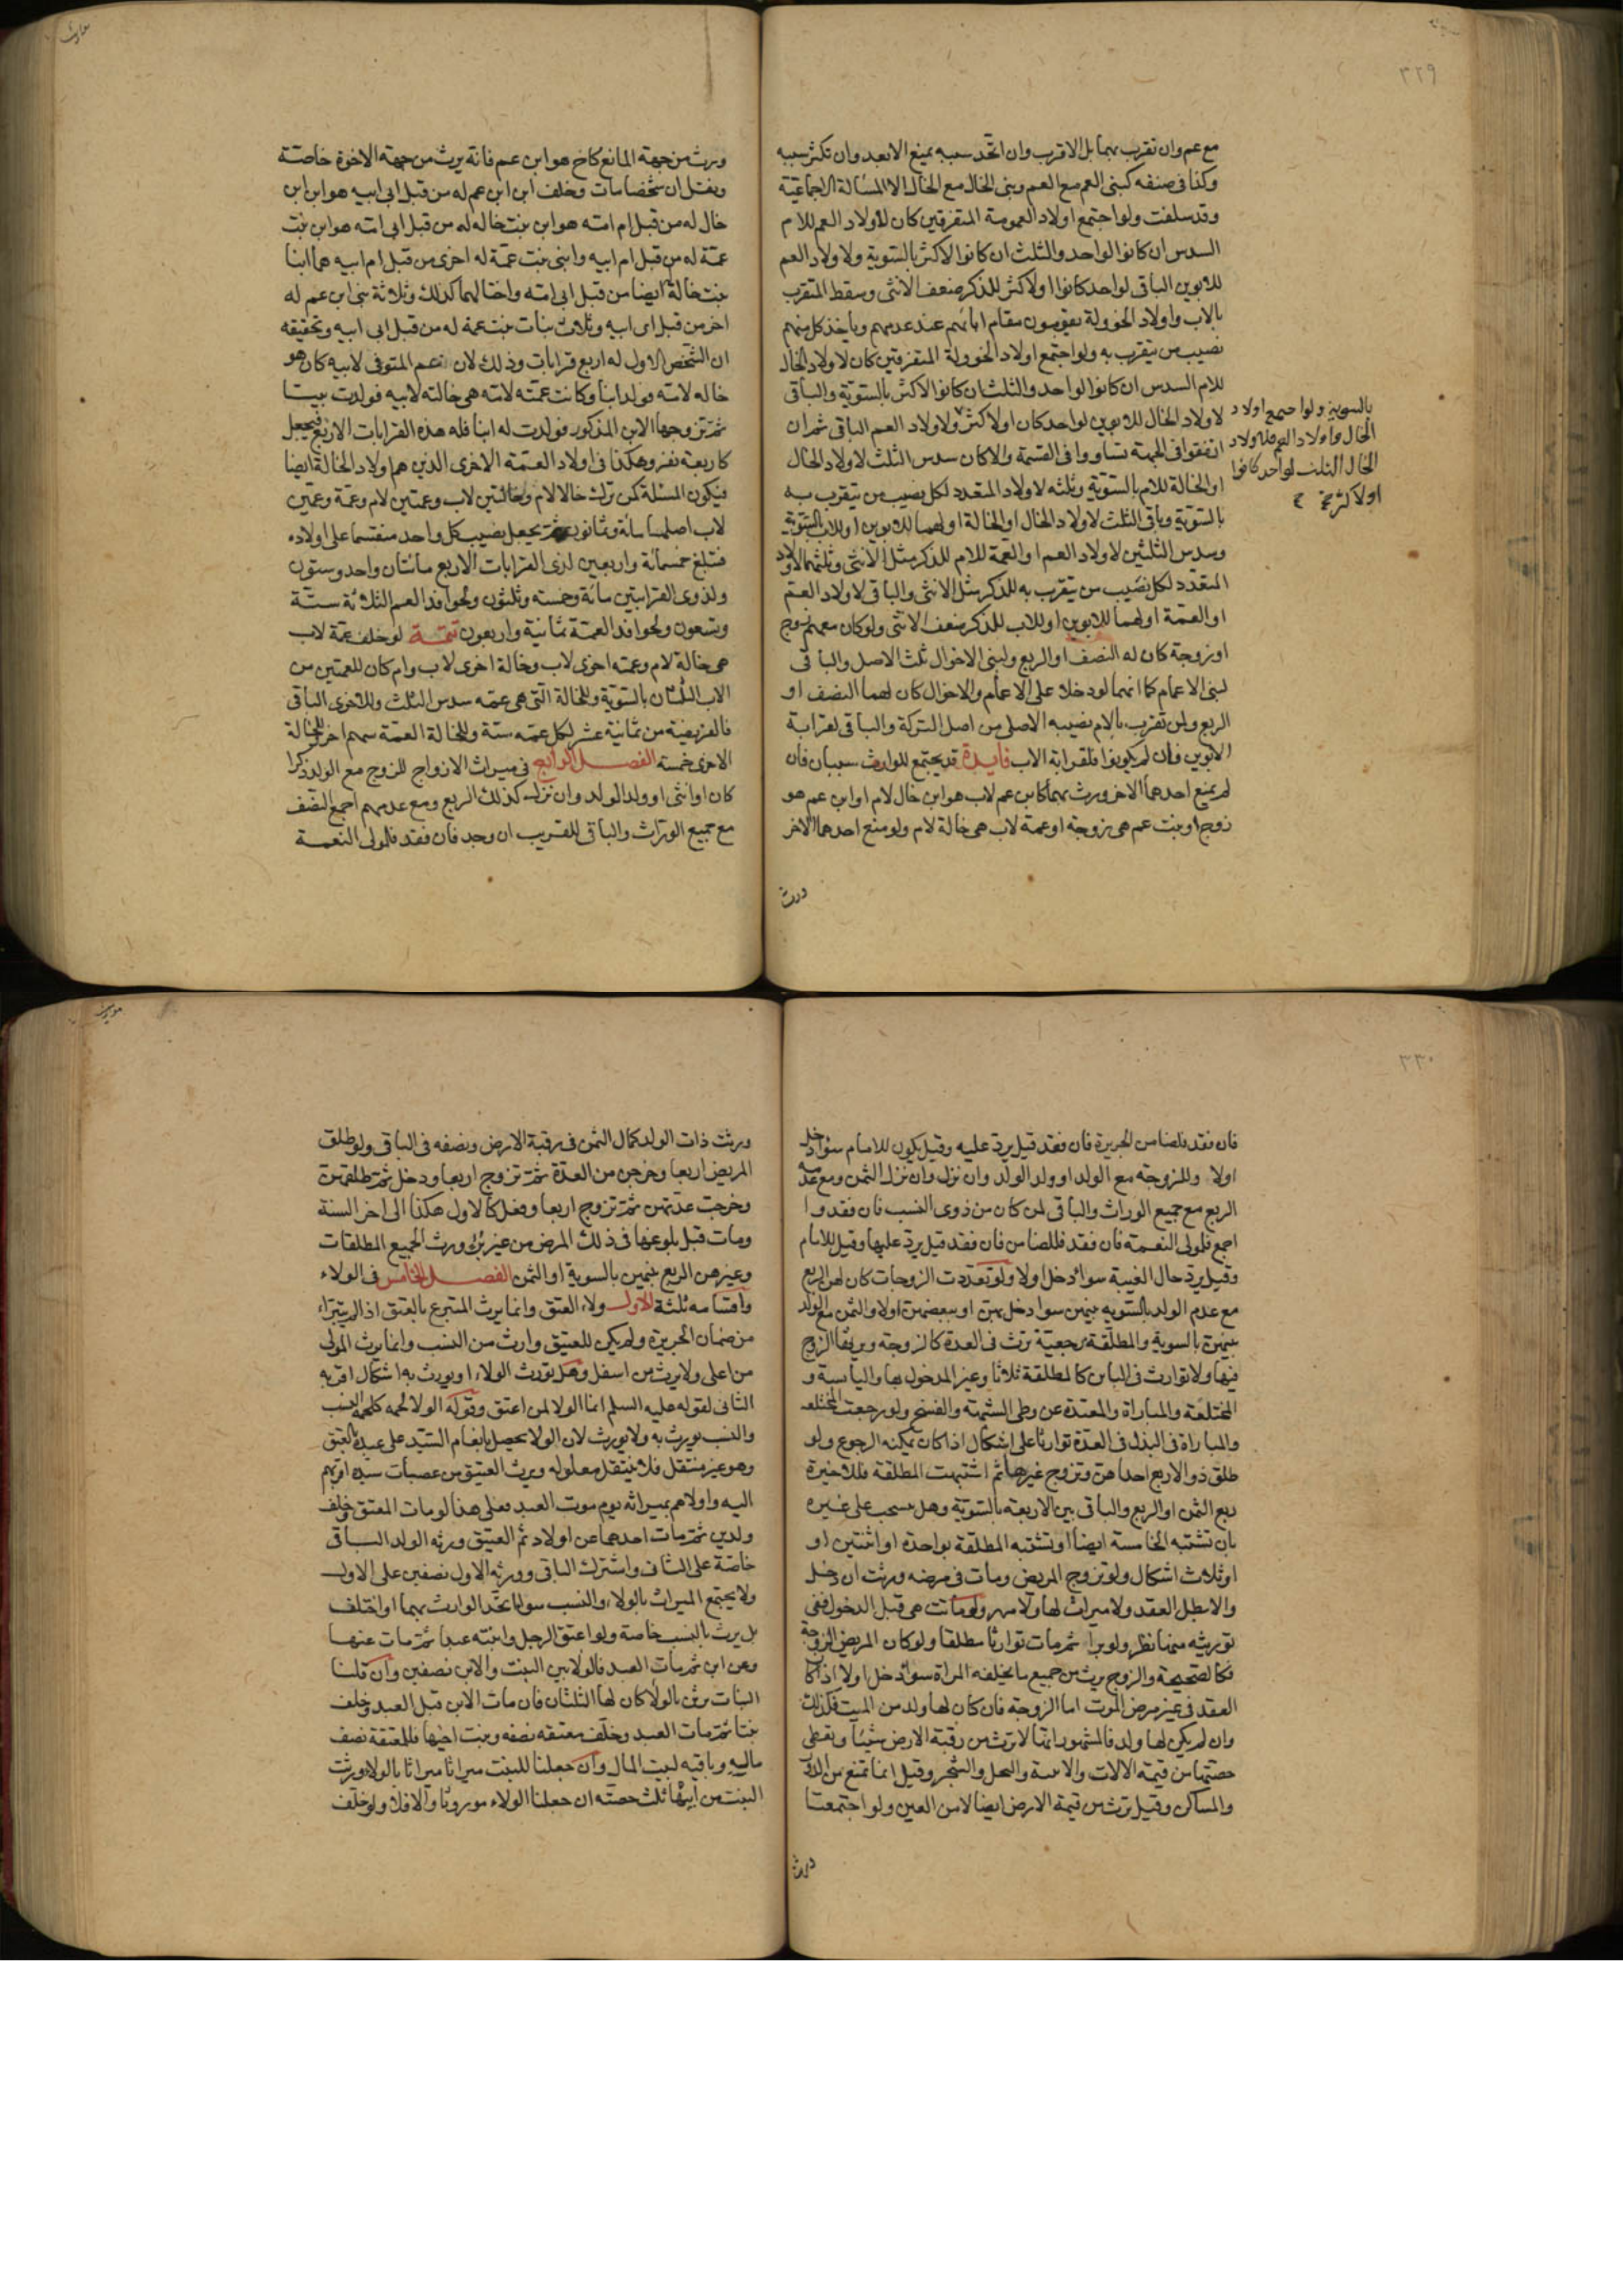 ٣٢٩
مع عم وان تقرب بهما بل الاقرب وان اتحد سببه يمنع الابعد وان تكثر سببه
وكذا فى صنفه كبنى العم مع العم وبنى الخال مع الخال الا المسالة الاجماعية
وقد سلفت ولو اجتمع اولاد العمومة المتفرقين كان لاولاد العم للام
السدس ان كانوا لواحد والثلث ان كانوا لاكثر بالسوية ولاولاد العم
للابوين الباقى لواحد كانوا او لاكثر للذكر ضعف الانثى وسقط المتقرب
بالاب واولاد الخوولة يقومون مقام ابائهم عند عدمهم وياخذ كل منهم
نصيب من يتقرب به ولو اجتمع اولاد الخوولة المتفرقين كان لاولاد الخال
للام السدس ان كانوا لواحد والثلث ان كانوا لاكثر بالسوية والباقى
لاولاد الخال للابوين لواحد كان او لاكثر ولاولاد العم الباقى ثم ان
اتفقوا فى الجهة تساووا فى القسمة والا كان سدس الثلث لاولاد الخال
او الخالة للام بالسوية وثلثه لاولاد المتعدد لكل نصيب من يتقرب به
بالسوية وباقى الثلث لاولاد الخال او الخالة او لهما للابوين او للاب بالسوية
وسدس الثلثين لاولاد العم او العمة للام للذكر مثل الانثى وثلثهما لاولاد
المتعدد لكل نصيب من يتقرب به للذكر مثل الانثى والباقى لاولاد العم
او العمة او لهما للابوين او للاب للذكر ضعف الانثى ولو كان معهم زوج
او زوجة كان له النصف او الربع ولبنى الاخوال ثلث الاصل والباقى
لبنى الاعمام كما انهما لو دخلا على الاعمام والاخوال كان لهما النصف او
الربع ولمن تقرب بالام نصيبه الاصلى من اصل التركة والباقى لقرابة
الابوين فان لم يكونوا فلقرابة الاب فايدة قد يجتمع للوارث سببان فان
لم يمنع احدهما الاخر ورث بهما كابن عم لاب هو ابن خال لام او ابن عم هو
زوج او بنت عم هى زوجة او عمة لاب هى خالة لام ولو منع احدهما الاخر
ورث
بالسوية ولو اجتمع اولاد
الخال واولاد العم فلاولاد
الخال الثلث لواحد كانوا
او لاكثر
ورث من جهة المانع كاخ هو ابن عم فانه يرث من جهة الاخوة خاصة
ان شخصا مات وخلف ابن ابن عم له من قبل ابى ابيه هو ابن ابن
خال له من قبل ام امه هو ابن بنت خالة له من قبل ابى امه هو ابن بنت
عمة له من قبل ام ابيه وابنى بنت عمة له اخرى من قبل ام ابيه هما ابنا
بنت خالة ايضا من قبل ابى امه واختا لهما كذلك وثلاثة بنى ابن عم له
اخر من قبل ابى ابيه وثلاث بنات بنت عمة له من قبل ابى ابيه وتحقيقه
ان الشخص الاول له اربع قرابات وذلك لان عم المتوفى لابيه كان هو
خاله لامه فولد ابنا وكانت عمته لامه هى خالته لابيه فولدت بنتا
ثم تزوجها الابن المذكور فولدت له ابنا فله هذه القرابات الاربع فيجعل
كاربعة نفر وهكذا فى اولاد العمة الاخرى الذين هم اولاد الخالة ايضا
فيكون المسئلة كمن ترك خالا لام وخالتين لاب وعمتين لام وعمة وعمين
لاب اصلها ماية وثمانون ثم يجعل نصيب كل واحد منقسما على اولاده
فتبلغ خمسمائة واربعين لذى القرابات الاربع مائتان واحد وستون
ولذوى القرابتين مائة وخمسة وثلثون ولحوافد العم الثلاثة ستة
وتسعون ولحوافد العمة ثمانية واربعون تتمة لو خلف عمة لاب
هى خالة لام وعمة اخرى لاب وخالة اخرى لاب وام كان للعمتين من
الاب الثلثان بالسوية وللخالة التى هى عمه سدس الثلث وللاخرى الباقى
فالفريضة من ثمانية عشر لكل عمة ستة وللخالة العمة سهم اخر وللخالة
الاخرى خمسة الفصل الرابع فى ميراث الازواج للزوج مع الولد ذكرا
كان او انثى او ولد الولد وان نزل كذلك الربع ومع عدمهم اجمع النصف
مع جميع الوراث والباقى للقريب ان وجد فان فقد فلمولى النعمة
٣٣٠
فان فقد فلضامن الجريرة فان فقد قيل يرد عليه وقيل يكون للامام سواء دخل
اولا وللزوجة مع الولد او ولد الولد وان نزل الثمن ومع عدمه
الربع مع جميع الوراث والباقى لمن كان من ذوى النسب فان فقدوا
اجمع فلمولى النعمة فان فقد فللضامن فان فقد قيل يرد عليها وقيل للامام
وقيل يرد حال الغيبة سواء دخل اولا ولو تعددت الزوجات كان لهن الربع
مع عدم الولد بالسوية بينهن سواء دخل بهن او ببعضهن اولا والثمن مع الولد
بينهن بالسوية والمطلقة رجعية ترث فى العدة كالزوجة ويرثها الزوج
فيها ولا توارث فى الباين كالمطلقة ثلاثا وغير المدخول بها واليائسة و
المختلعة والمباراة والمعتدة عن وطى الشبهة والفسخ ولو رجعت المختلعة
والمباراة فى البذل فى العدة توارثا على اشكال اذا كان يمكنه الرجوع ولو
طلق ذو الاربع احداهن وتزوج غيرها ثم اشتبهت المطلقة فللاخيرة
ربع الثمن او الربع والباقى بين الاربعة بالسوية وهل ينسحب على غيره
بان تشتبه الخامسة ايضا او تشتبه المطلقة بواحدة او اثنتين او
او ثلاث اشكال ولو تزوج المريض ومات فى مرضه ورثت ان دخل
والا بطل العقد ولا ميراث لها ولا مهر ولو ماتت هى قبل الدخول ففى
توريثه منها نظر ولو برا ثم مات توارثا مطلقا ولو كان المريض الزوجة
فكالصحيحة والزوج يرث من جميع ما يخلفه المراة سواء دخل اولا اذا كان
العقد فى غير مرض الموت اما الزوجة فان كان لها ولد من الميت فكذلك
وان لم يكن لها ولد فالمشهور انها لا ترث من رقبة الارض شيئا وتعطى
حصتها من قيمة الالات والابنية والنخل والشجر وقيل انما تمنع من الدور
والمساكن وقيل ترث من قيمة الارض ايضا لا من العين ولو اجتمعتا
ورث
ورثت ذات الولد كمال الثمن فى رقبة الارض ونصفه فى الباقى ولو طلق
المريض اربعا وخرجن من العدة ثم تزوج اربعا ودخل ثم طلقهن
وخرجت عدتهن ثم تزوج اربعا وفعل كالاول هكذا الى اخر السنة
ومات قبل بلوغها فى ذلك المرض من غير برء ورث الجميع المطلقات
وغيرهن الربع بينهن بالسوية او الثمن الفصل الخامس فى الولاء
واقسامه ثلثة الاول ولاء العتق وانما يرث المتبرع بالعتق اذا لم يتبراء
من ضمان الجريرة ولم يكن للعتيق وارث من النسب وانما يرث المولى
من اعلى ولا يرث من اسفل وهل يورث الولاء او يورث به اشكال اقربه
الثانى لقوله عليه السلم انما الولا لمن اعتق وقوله الولا لحمه كلحمة النسب
والنسب يورث به ولا يورث لان الولا يحصل بانعام السيد على عبده بالعتق
وهو غير منتقل فلا ينتقل معلوله ويرث العتيق من عصبات سيده اقربهم
اليه واولاهم بميراثه يوم موت العبد فعلى هذا لو مات المعتق وخلف
ولدين ثم مات احدهما عن اولاد ثم العتيق ورثه الولد الباقى
خاصة على الثانى واشترك الباقى وورثه الاول نصفين على الاول
ولا يجتمع الميراث بالولاء والنسب سواء اتحد الوارث بهما او اختلف
بل يرث بالنسب خاصة ولو اعتق الرجل وابنته عبدا ثم مات عنها
وعن ابن ثم مات العبد فالولا بين البنت والابن نصفين وان قلنا
البنات يرثن بالولاء كان لها الثلثان فان مات الابن قبل العبد وخلف
بنتا ثم مات العبد وخلف معتقة نصفه وبنت اخيها فللمعتقة نصف
ماله وباقيه لبيت المال وان جعلنا للبنت ميراثا بالولاء ورثت
البنت من ابيها ثلث حصته ان جعلنا الولاء موروثا والا فلا ولو خلف